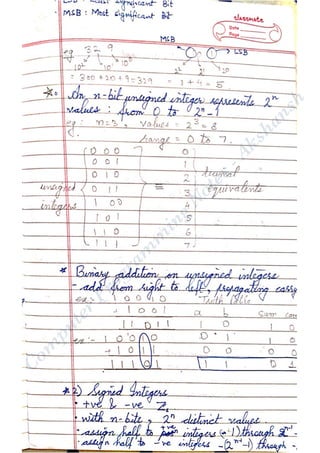 - LSB : Least Significant Bit
- MSB : Most Significant Bit
classmate
Date
Page
MSB
LSB
eg. 3 2 9
10² 10¹ 10⁰
2² 2¹ 2⁰
= 300 + 20 + 9 = 329
= 1 + 4 = 5
An n-bit unsigned integer represents 2ⁿ
values : from 0 to 2ⁿ-1
eg : n=3, values = 2³ = 8
range = 0 to 7.
0 0 0 0
0 0 1 1
0 1 0 2 decimal
unsigned 0 1 1 = 3 equivalents
integers 1 0 0 4
1 0 1 5
1 1 0 6
1 1 1 7
* Binary addition on unsigned integers
- add from right to left, propagating carry
ex:- 1 0 0 1 0 Truth Table
+ 1 0 0 1 a b Sum
1 1 0 1 1 1 0 1 0
ex:- 1 0 0 1 0 0 1 1 0
+ 1 0 1 1 0 0 0 0
1 1 1 0 1 1 1 0 1
*2) Signed Integers
• +ve & -ve Z.
• with n-bits, 2ⁿ distinct values
- assign half to +ve integers (1) through
- assign half to -ve integers -(2ⁿ⁻¹-1) through